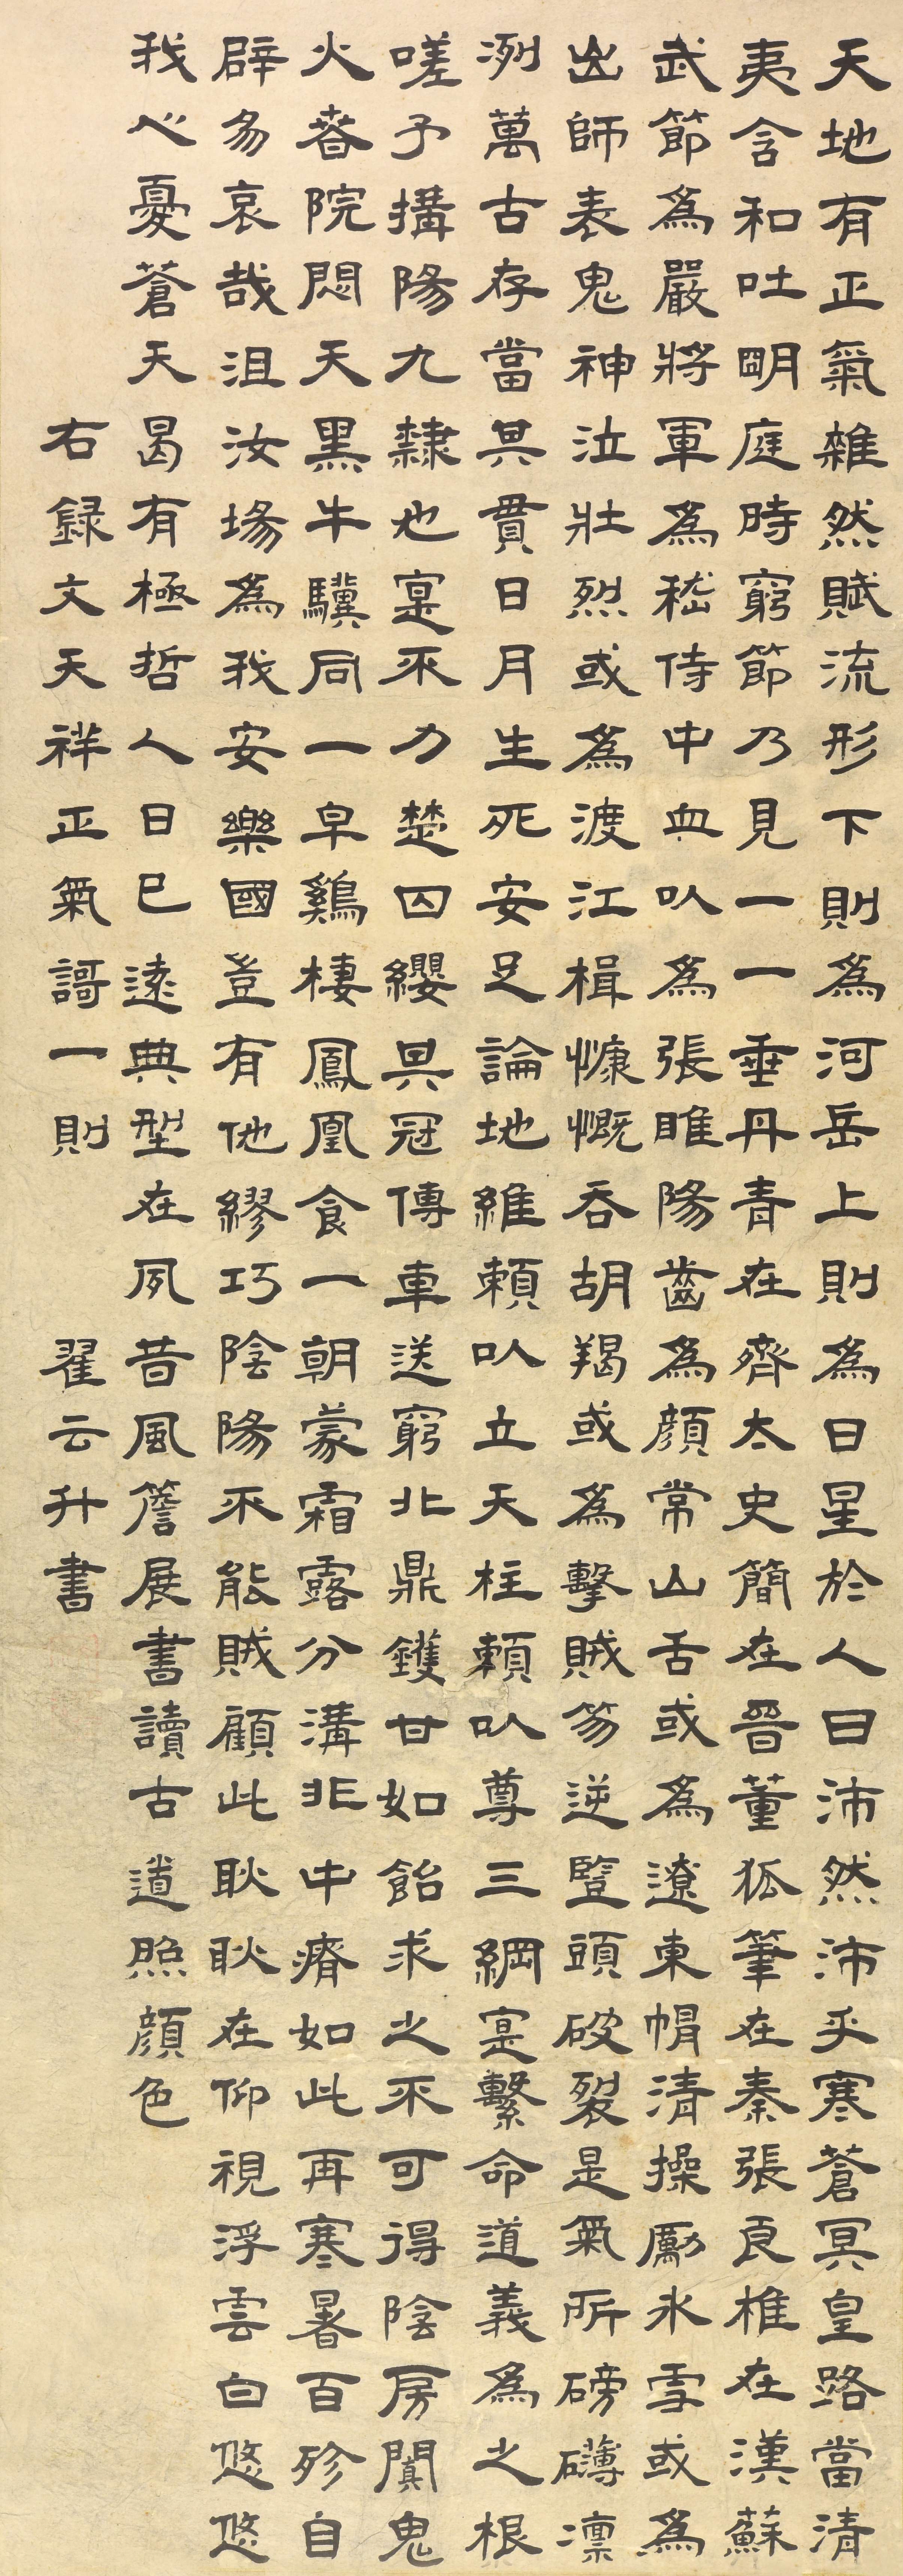 天地有正氣雜然賦流形下則為河岳上則為日星於人曰沛然沛乎寒蒼冥皇路當清
夷含和吐明庭時窮節乃見一一垂丹青在齊太史簡在晉董狐筆在秦張良椎在漢蘇
武節為嚴將軍為嵇侍中血以為張睢陽齒為顏常山舌或為遼東帽清操勵氷雪或為
出師表鬼神泣壯烈或為渡江楫慷慨吞胡羯或為擊賊笏逆豎頭破裂是氣所磅礴凜
冽萬古存當其貫日月生死安足論地維賴以立天柱賴以尊三綱寔繫命道義為之根
嗟予搆陽九隸也寔不力楚囚纓其冠傳車送窮北鼎鑊甘如飴求之不可得陰房闃鬼
火春院閟天黑牛驥同一皁鷄棲鳳凰食一朝蒙霜露分溝非中瘠如此再寒暑百沴自
辟易哀哉沮汝場為我安樂國豈有他繆巧陰陽不能賊顧此耿耿在仰視浮雲白悠悠
我心憂蒼天曷有極哲人日已遠典型在夙昔風簷展書讀古道照顏色
右錄文天祥正氣謌一則 翟云升書